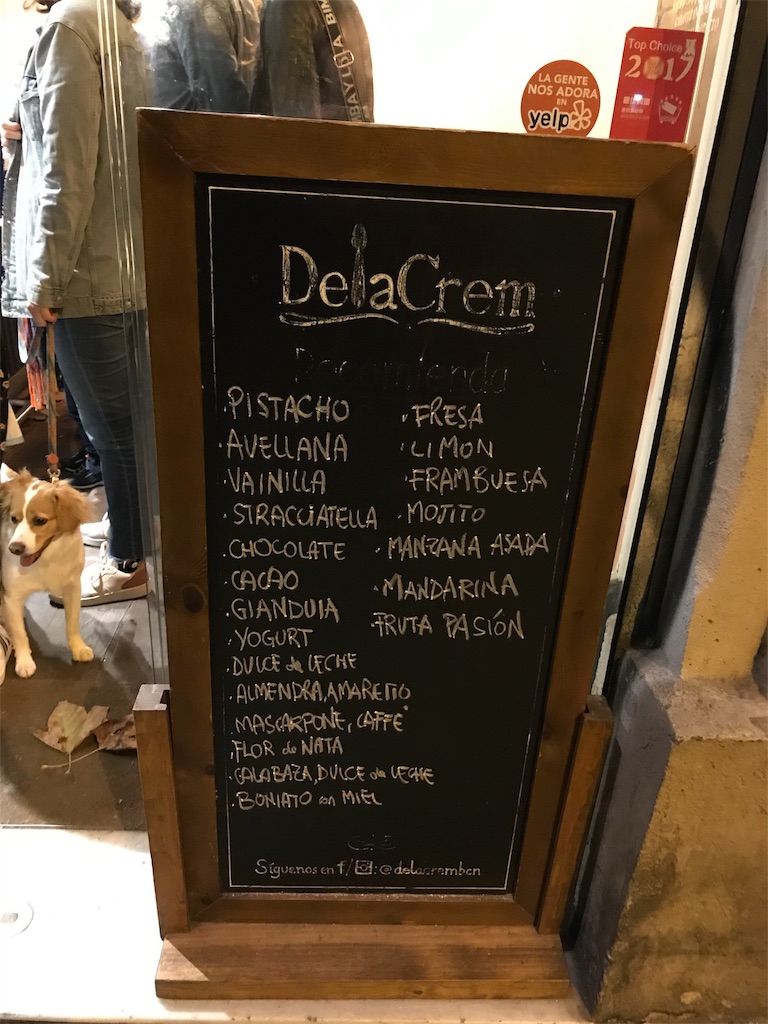 LA GENTE
NOS ADORA
EN
yelp
Top Choice
2017
DelaCrem
Recomienda
.PISTACHO
.AVELLANA
.VAINILLA
.STRACCIATELLA
.CHOCOLATE
.CACAO
.GIANDUIA
.YOGURT
.DULCE de LECHE
.ALMENDRA, AMARETTO
.MASCARPONE, CAFFÉ
.FLOR de NATA
.CALABAZA, DULCE de LECHE
.BONIATO con MIEL
.FRESA
.LIMON
.FRAMBUESA
.MOJITO
.MANZANA ASADA
.MANDARINA
.FRUTA PASIÓN
Síguenos en f/ : @delacrembcn